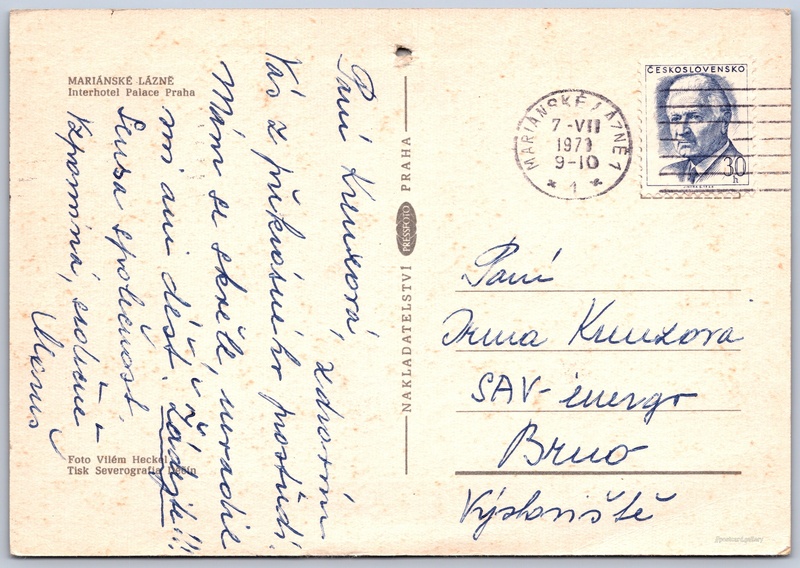 MARIÁNSKÉ LÁZNĚ
Interhotel Palace Praha
Paní Kunzová, zdravím
Vás z překrásného prostředí.
Mám se skvěle, nevadí
mi ani déšť. Žádejte!!!
společnost.
Vzpomíná, srdečně
Foto Vilém Heckel
Tisk Severografia Děčín
NAKLADATELSTVÍ PRESSFOTO PRAHA
MARIÁNSKÉ LÁZNĚ 1
7-VII
1971
9-10
* 1 *
ČESKOSLOVENSKO
30 h
Paní
Irma Kunzová
SAV-energo
Brno
Výstaviště